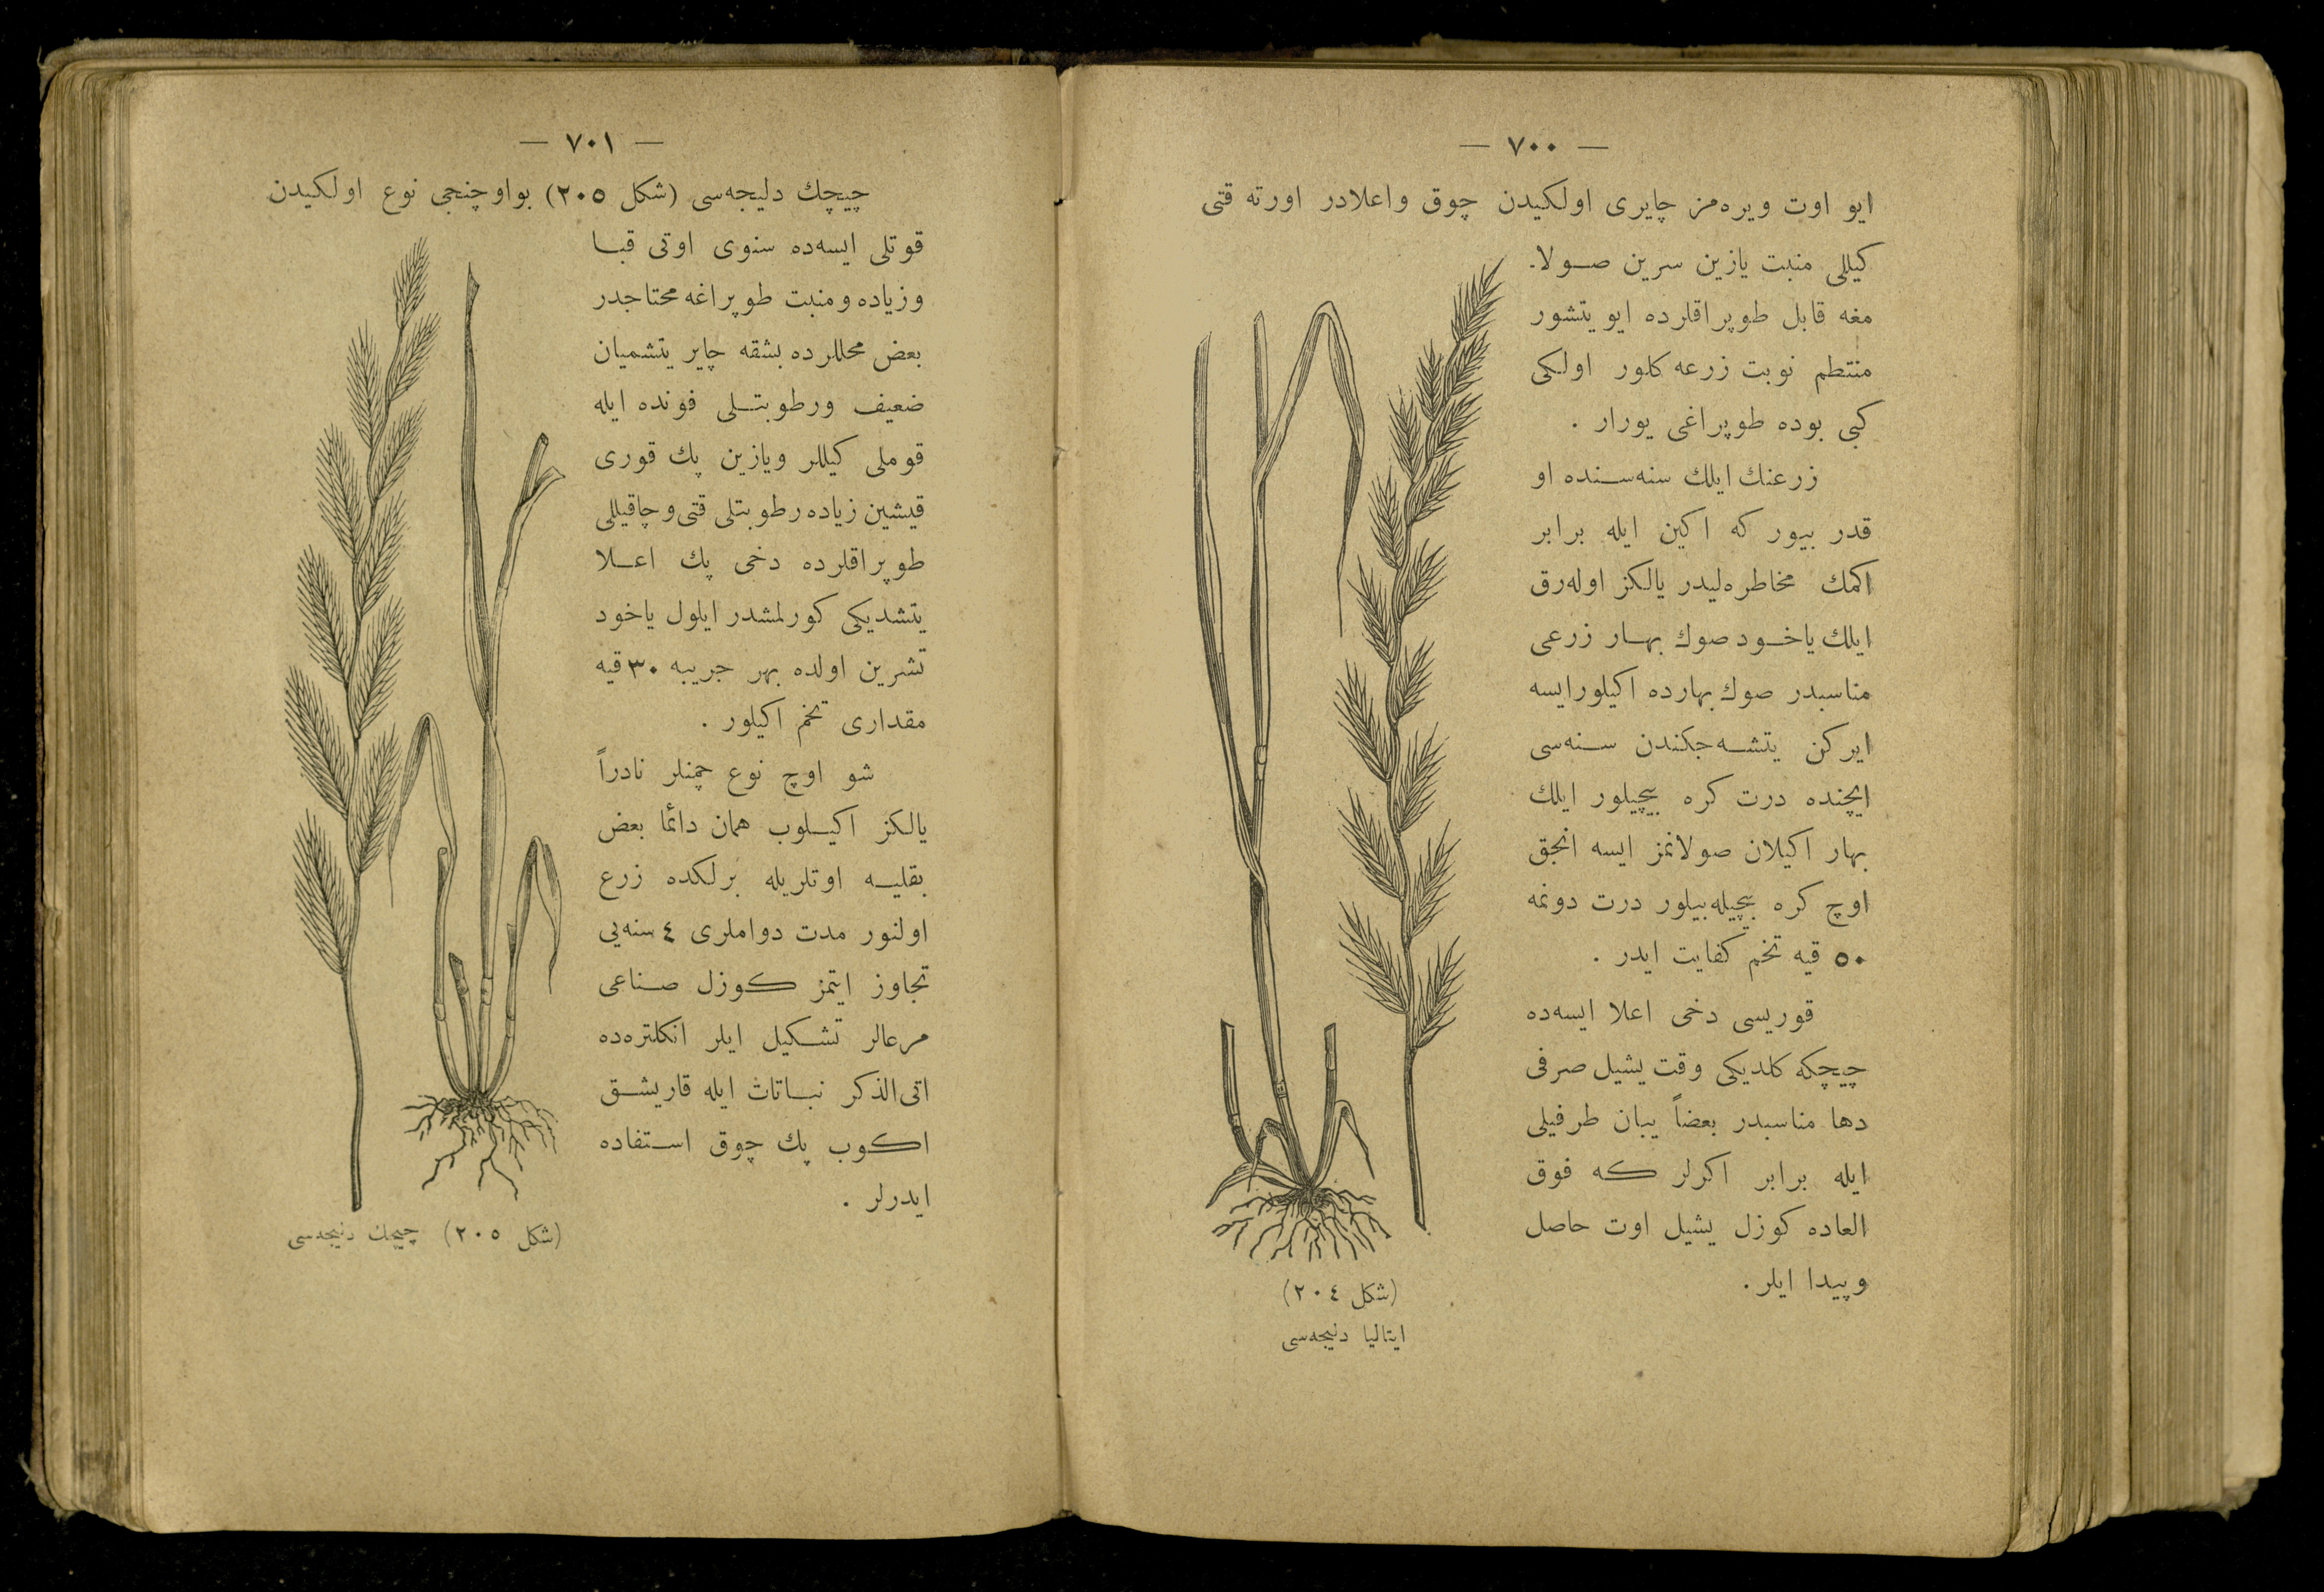 — ٧٠٠ —
ایو اوت ویره‌مز چایری اولكیدن چوق واعلادر اورته قتی
كیللی منبت یازین سرین صولا-
مغه قابل طوپراقلرده ایو یتشور
منتظم نوبت زرعه كلور اولكی
كبی بوده طوپراغی یورار .
زرعنك ایلك سنه‌سنده او
قدر بیور كه اكین ایله برابر
اكمك مخاطره‌لیدر یالكز اوله‌رق
ایلك یاخود صوك بهار زرعی
مناسبدر صوك بهارده اكیلورایسه
ایركن یتشه‌جكندن سنه‌سی
ایچنده درت كره بیچیلور ایلك
بهار اكیلان صولانمز ایسه انجق
اوچ كره بیچیله‌بیلور درت دونمه
٥٠ قیه تخم كفایت ایدر .
قوریسی دخی اعلا ایسه‌ده
چیچكه كلدیكی وقت یشیل صرفی
دها مناسبدر بعضاً یبان طرفیلی
ایله برابر اكرلر كه فوق
العاده كوزل یشیل اوت حاصل
وپیدا ایلر .
(شكل ٢٠٤)
ایتالیا دلیجه‌سی
— ٧٠١ —
چیچك دلیجه‌سی (شكل ٢٠٥) بواوچنجی نوع اولكیدن
قوتلی ایسه‌ده سنوی اوتی قبا
وزیاده ومنبت طوپراغه محتاجدر
بعض محللرده بشقه چایر یتشمیان
ضعیف ورطوبتلی فونده ایله
قوملی كیللر ویازین پك قوری
قیشین زیاده رطوبتلی قتی وچاقیللی
طوپراقلرده دخی پك اعلا
یتشدیكی كورلمشدر ایلول یاخود
تشرین اولده بهر جریبه ٣٠ قیه
مقداری تخم اكیلور .
شو اوچ نوع چمنلر نادراً
یالكز اكیلوب همان دائما بعض
بقلیه اوتلریله برلكده زرع
اولنور مدت دواملری ٤ سنه‌یی
تجاوز ایتمز كوزل صناعی
مرعالر تشكیل ایلر انكلتره‌ده
اتی‌الذكر نباتات ایله قاریشق
اكوب پك چوق استفاده
ایدرلر .
(شكل ٢٠٥) چیچك دلیجه‌سی